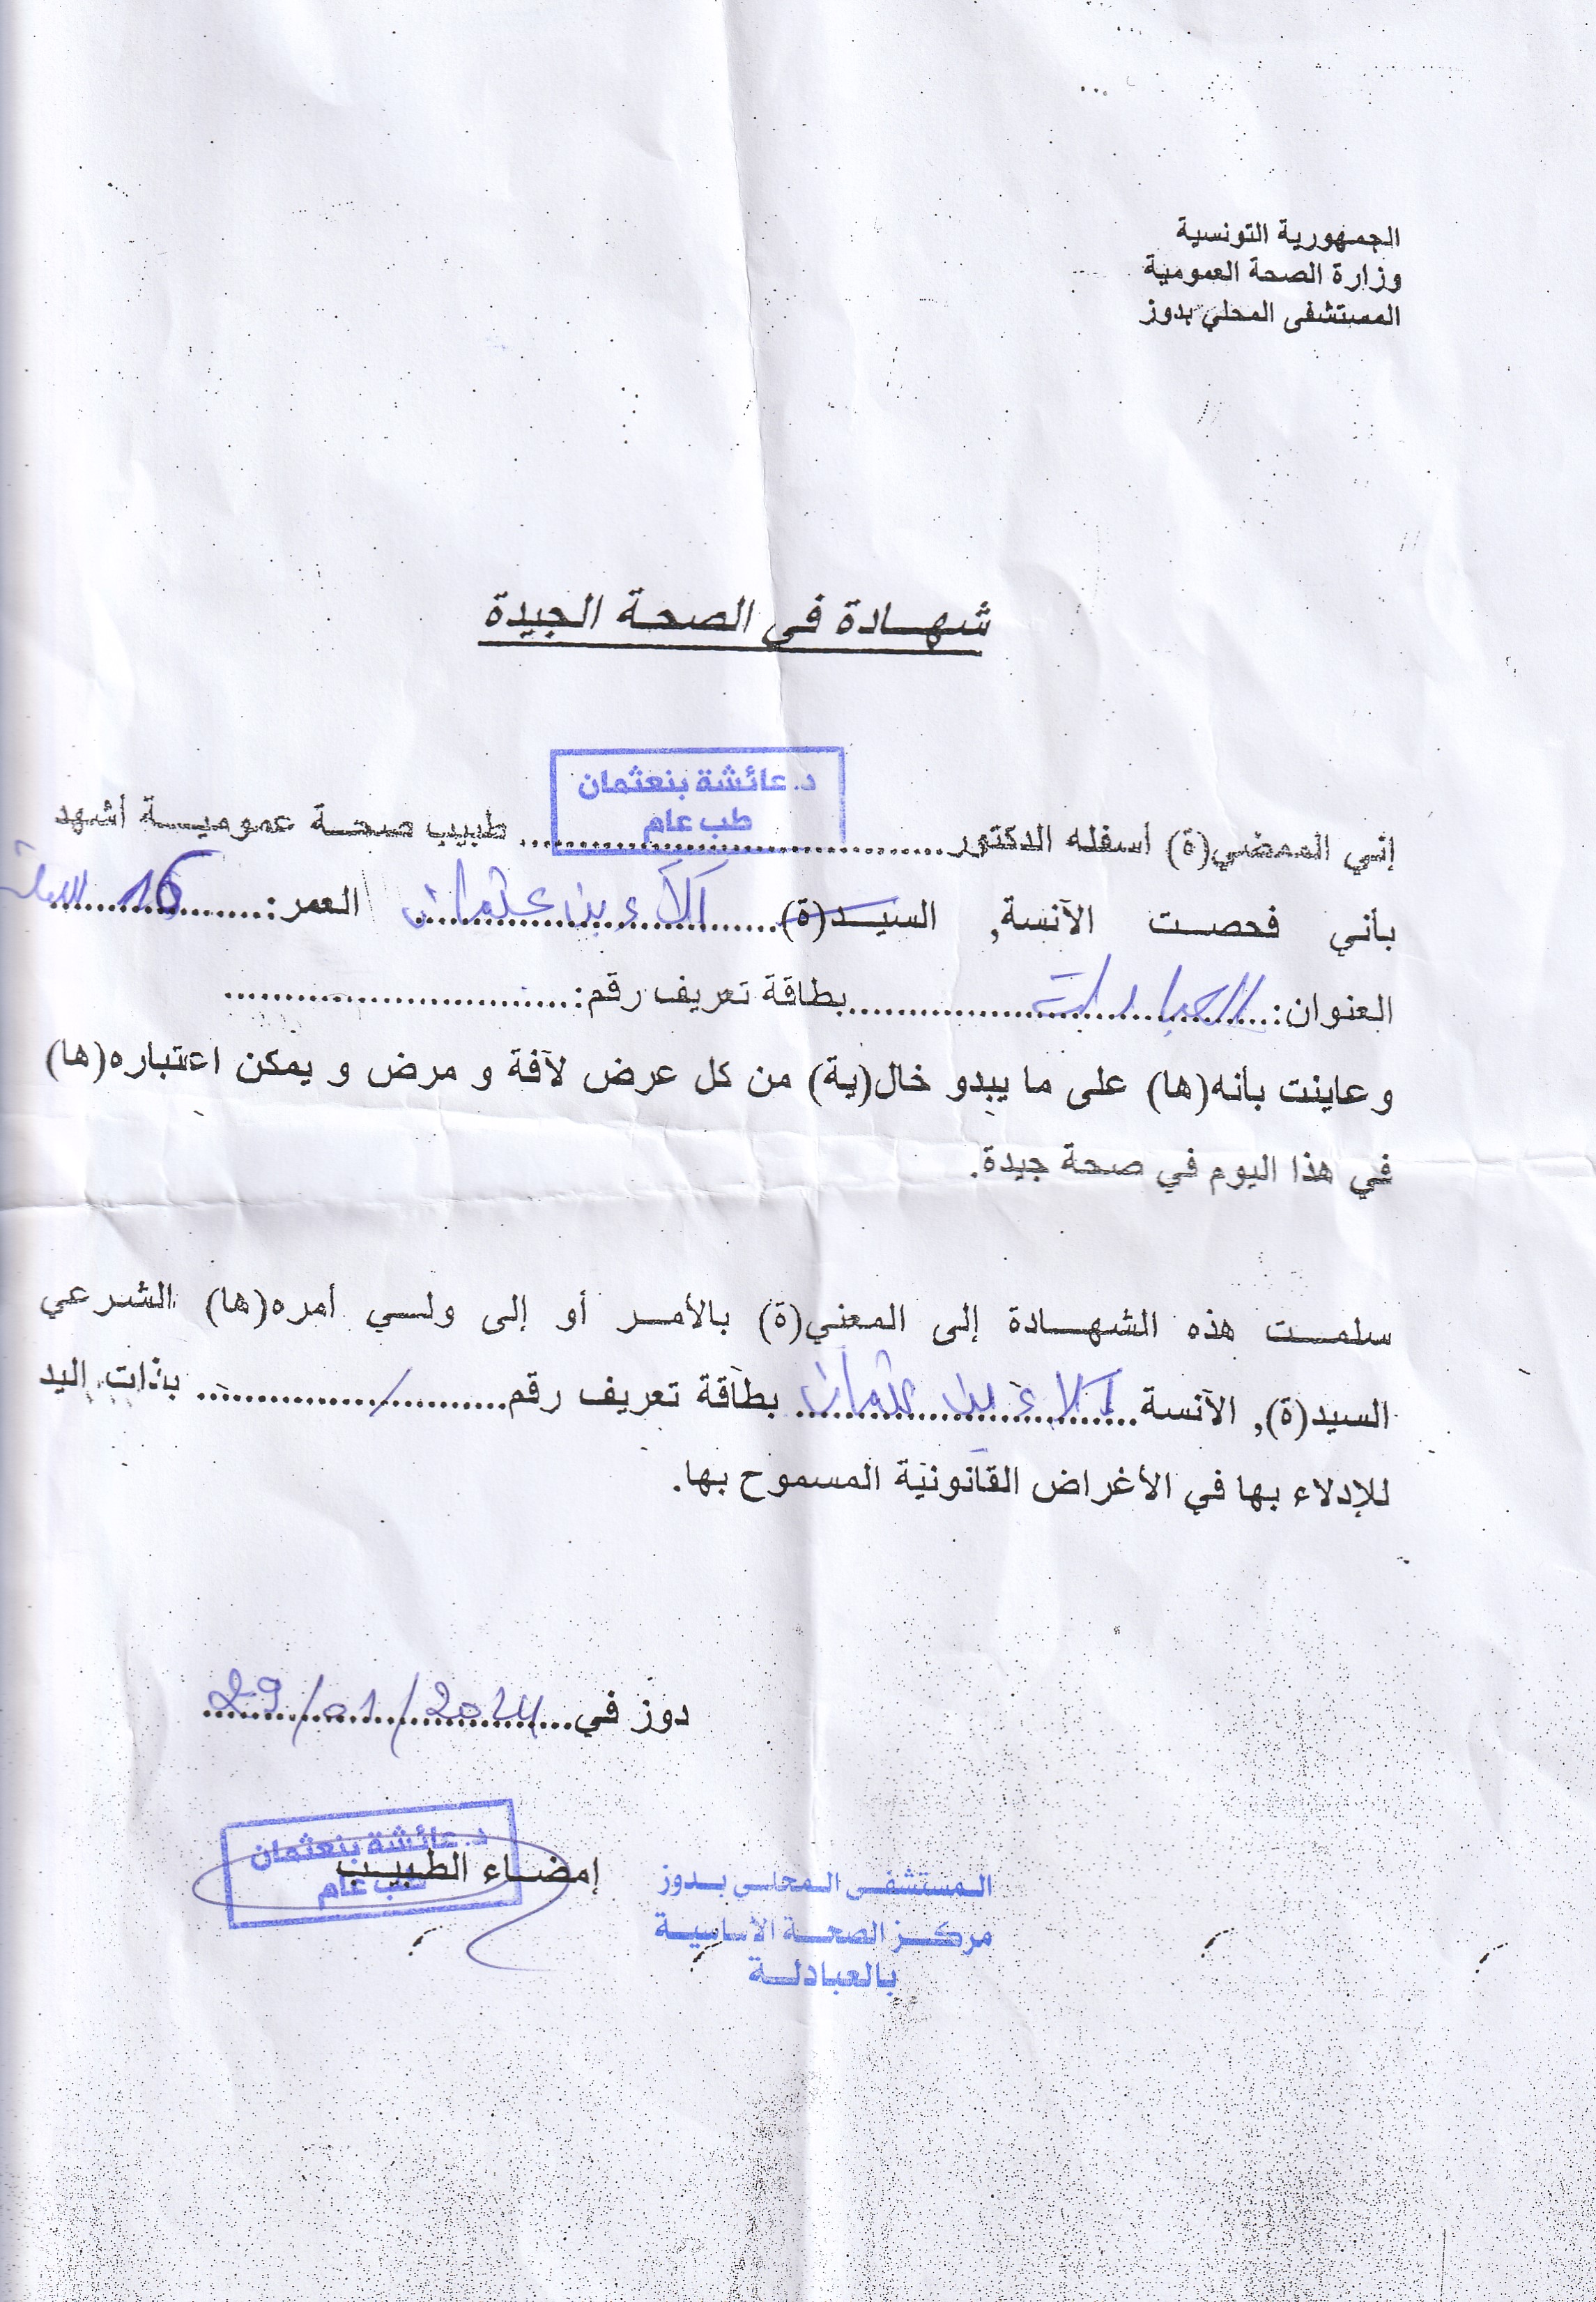 الجمهورية التونسية
وزارة الصحة العمومية
المستشفى المحلي بدوز
شهـــادة في الصحـة الجيدة
د. عائشة بنعثمان
طب عام
إني الممضي(ة) أسفله الدكتور.......................................... طبيب صحـة عموميـــة أشهد
بأني فحصــت الآنسة, السيــد(ة)..... آلاء بن عثمان العمر: 16 سنة
العنوان: العبادلة ..........بطاقة تعريف رقم:..............................
و عاينت بأنه(ها) على ما يبدو خال(ية) من كل عرض لآفة و مرض و يمكن اعتباره(ها)
في هذا اليوم في صحة جيدة.
سلمـــت هذه الشهــــادة إلى المعني(ة) بالأمــر أو إلى ولـــي أمره(ها) الشرعي
السيد(ة), الآنسة آلاء بن عثمان بطاقة تعريف رقم........../.............. بذات اليد
للإدلاء بها في الأغراض القانونية المسموح بها.
دوز في 29/01/2024
إمضـاء الطبيب
د. عائشة بنعثمان
طب عام
المستشفـى المحلـي بـدوز
مركــز الصحــة الأساسيــة
بالعبادلــة